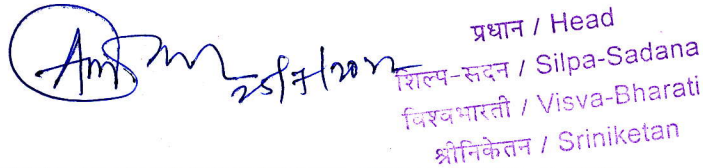 25/7/2022
प्रधान / Head
शिल्प-सदन / Silpa-Sadana
विश्वभारती / Visva-Bharati
श्रीनिकेतन / Sriniketan